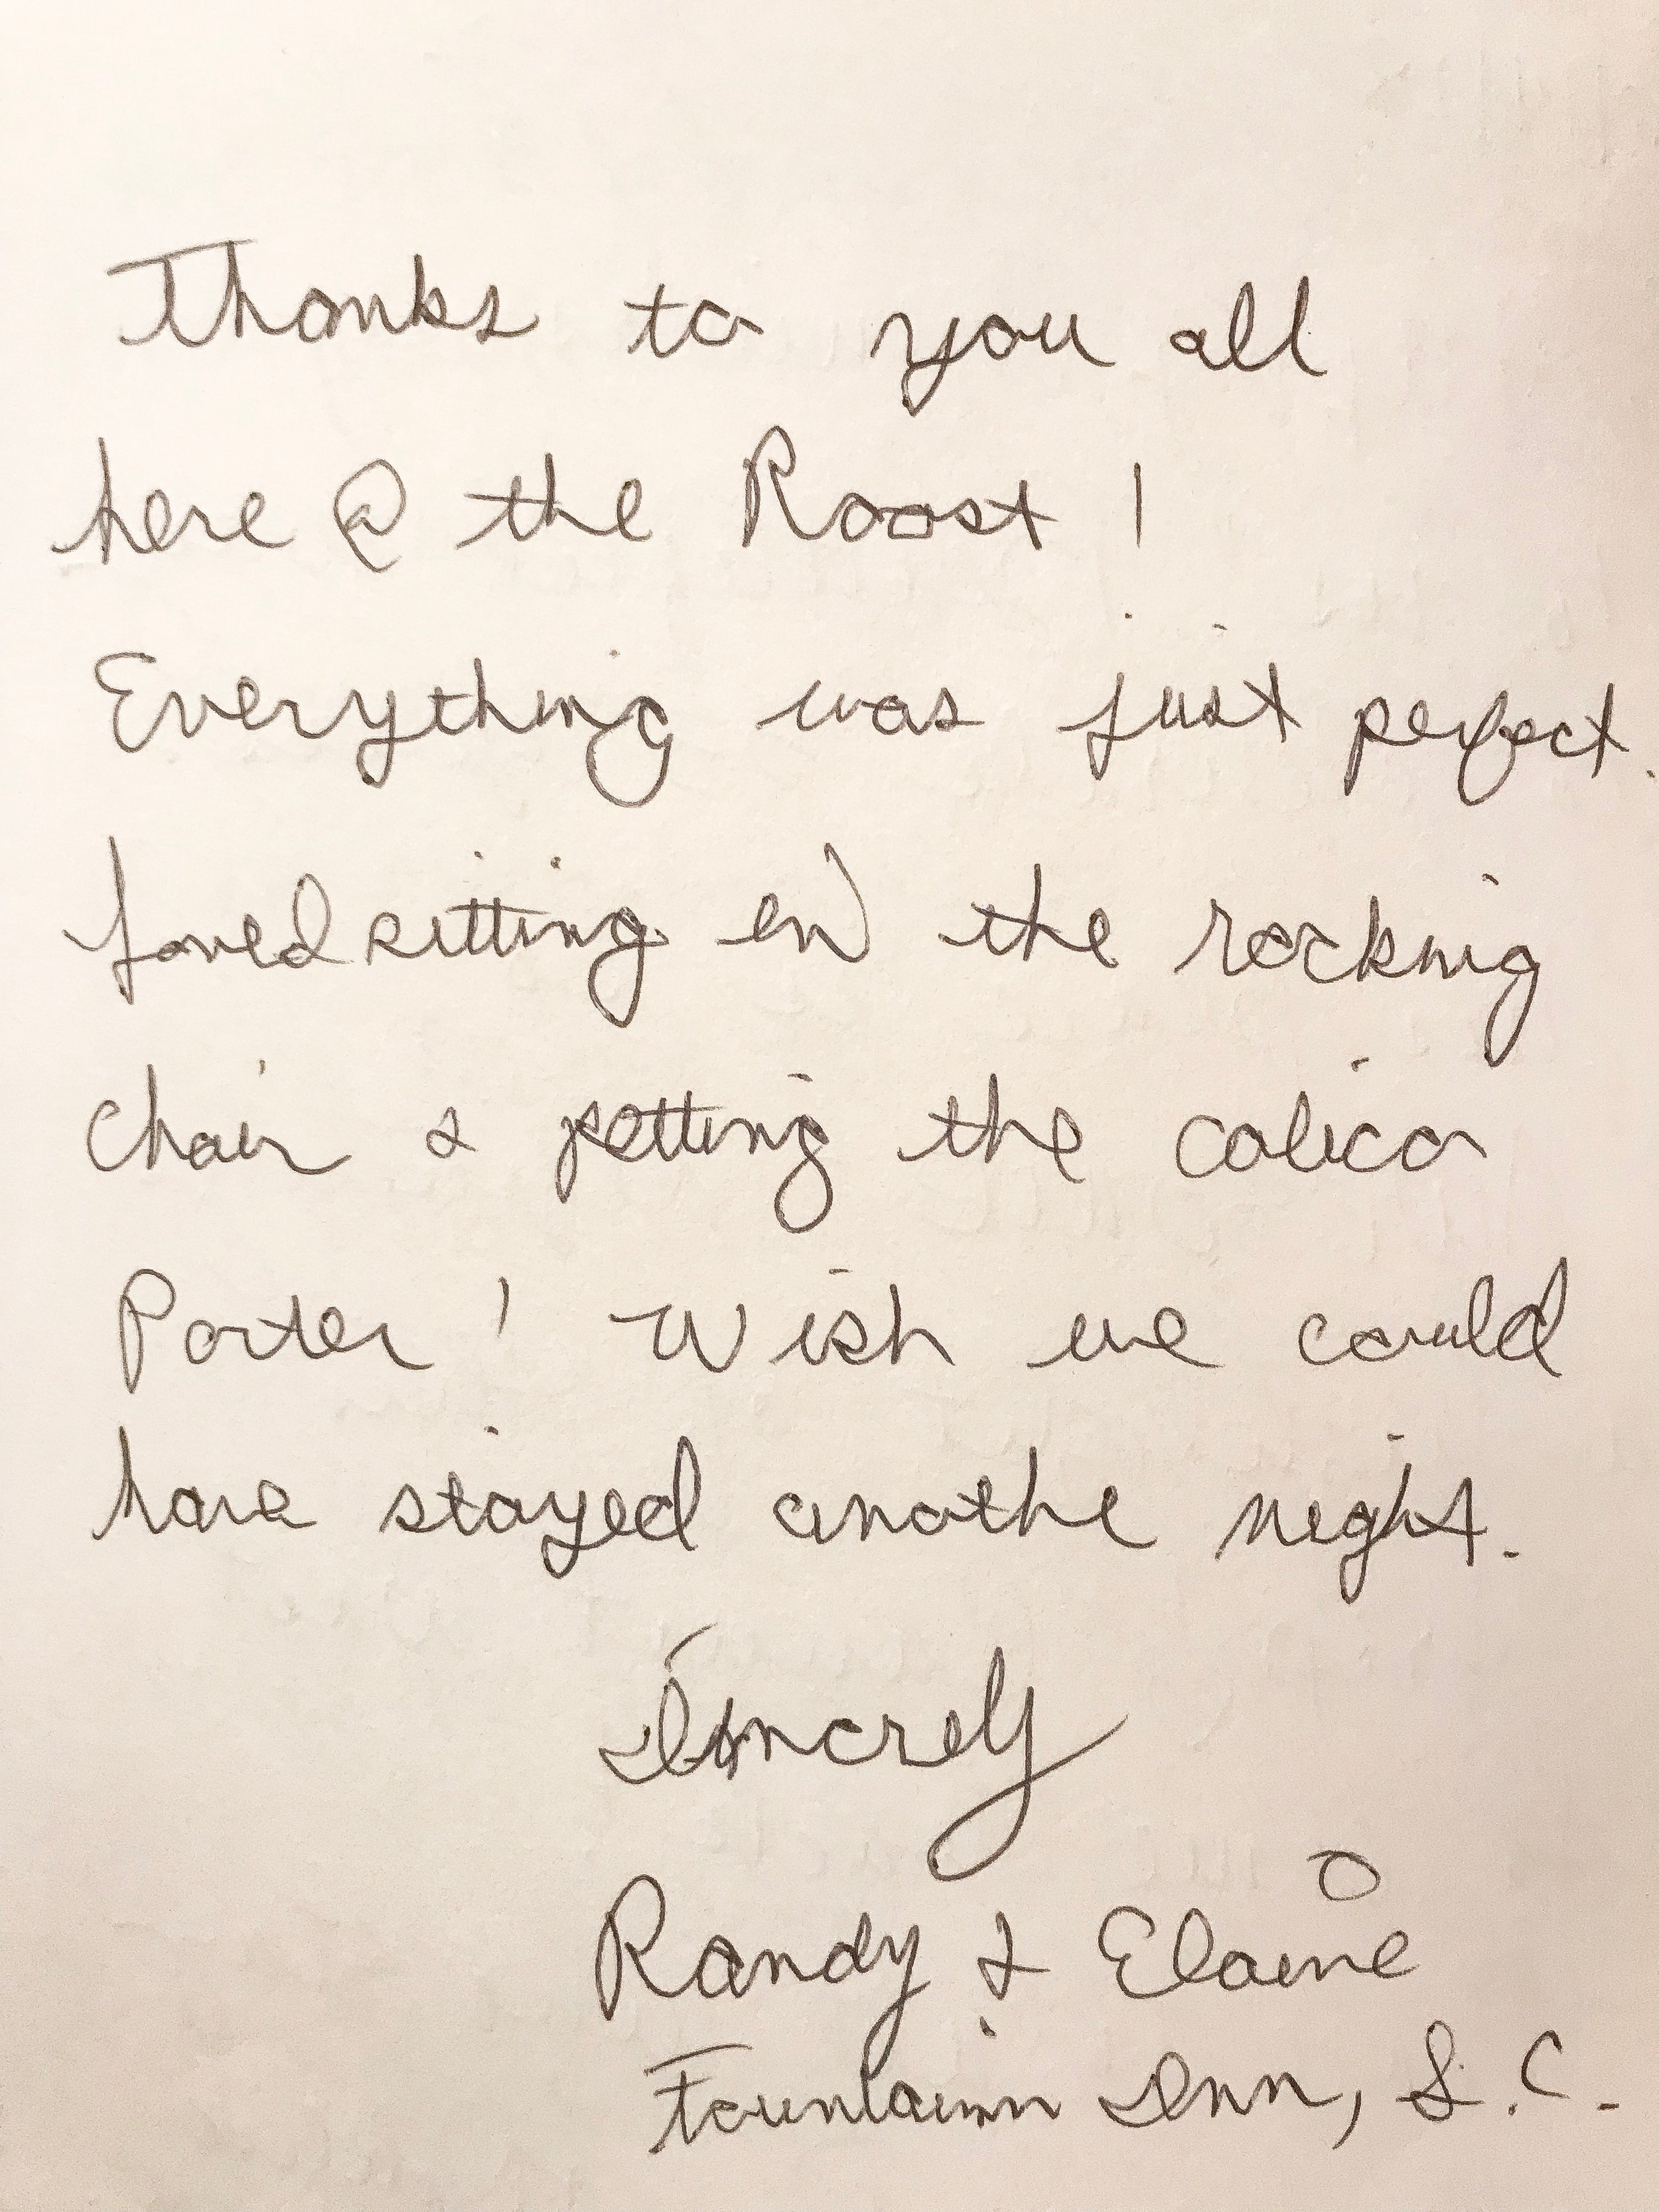 Thanks to you all
here @ the Roost!
Everything was just perfect.
Loved sitting in the rocking
chair & petting the calico
Porter! Wish we could
have stayed anothe night.
Sincrely
Randy & Elaine
Fountain Inn, S.C.